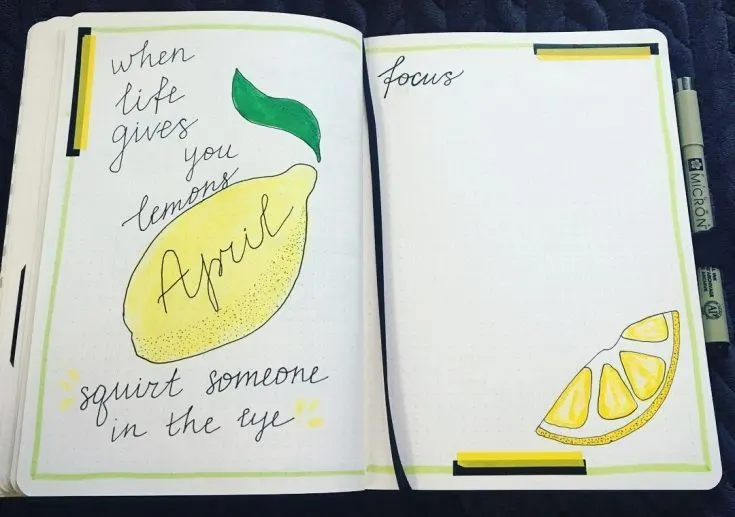 when
life
gives
you
lemons
April
squirt someone
in the eye
focus
MICRON